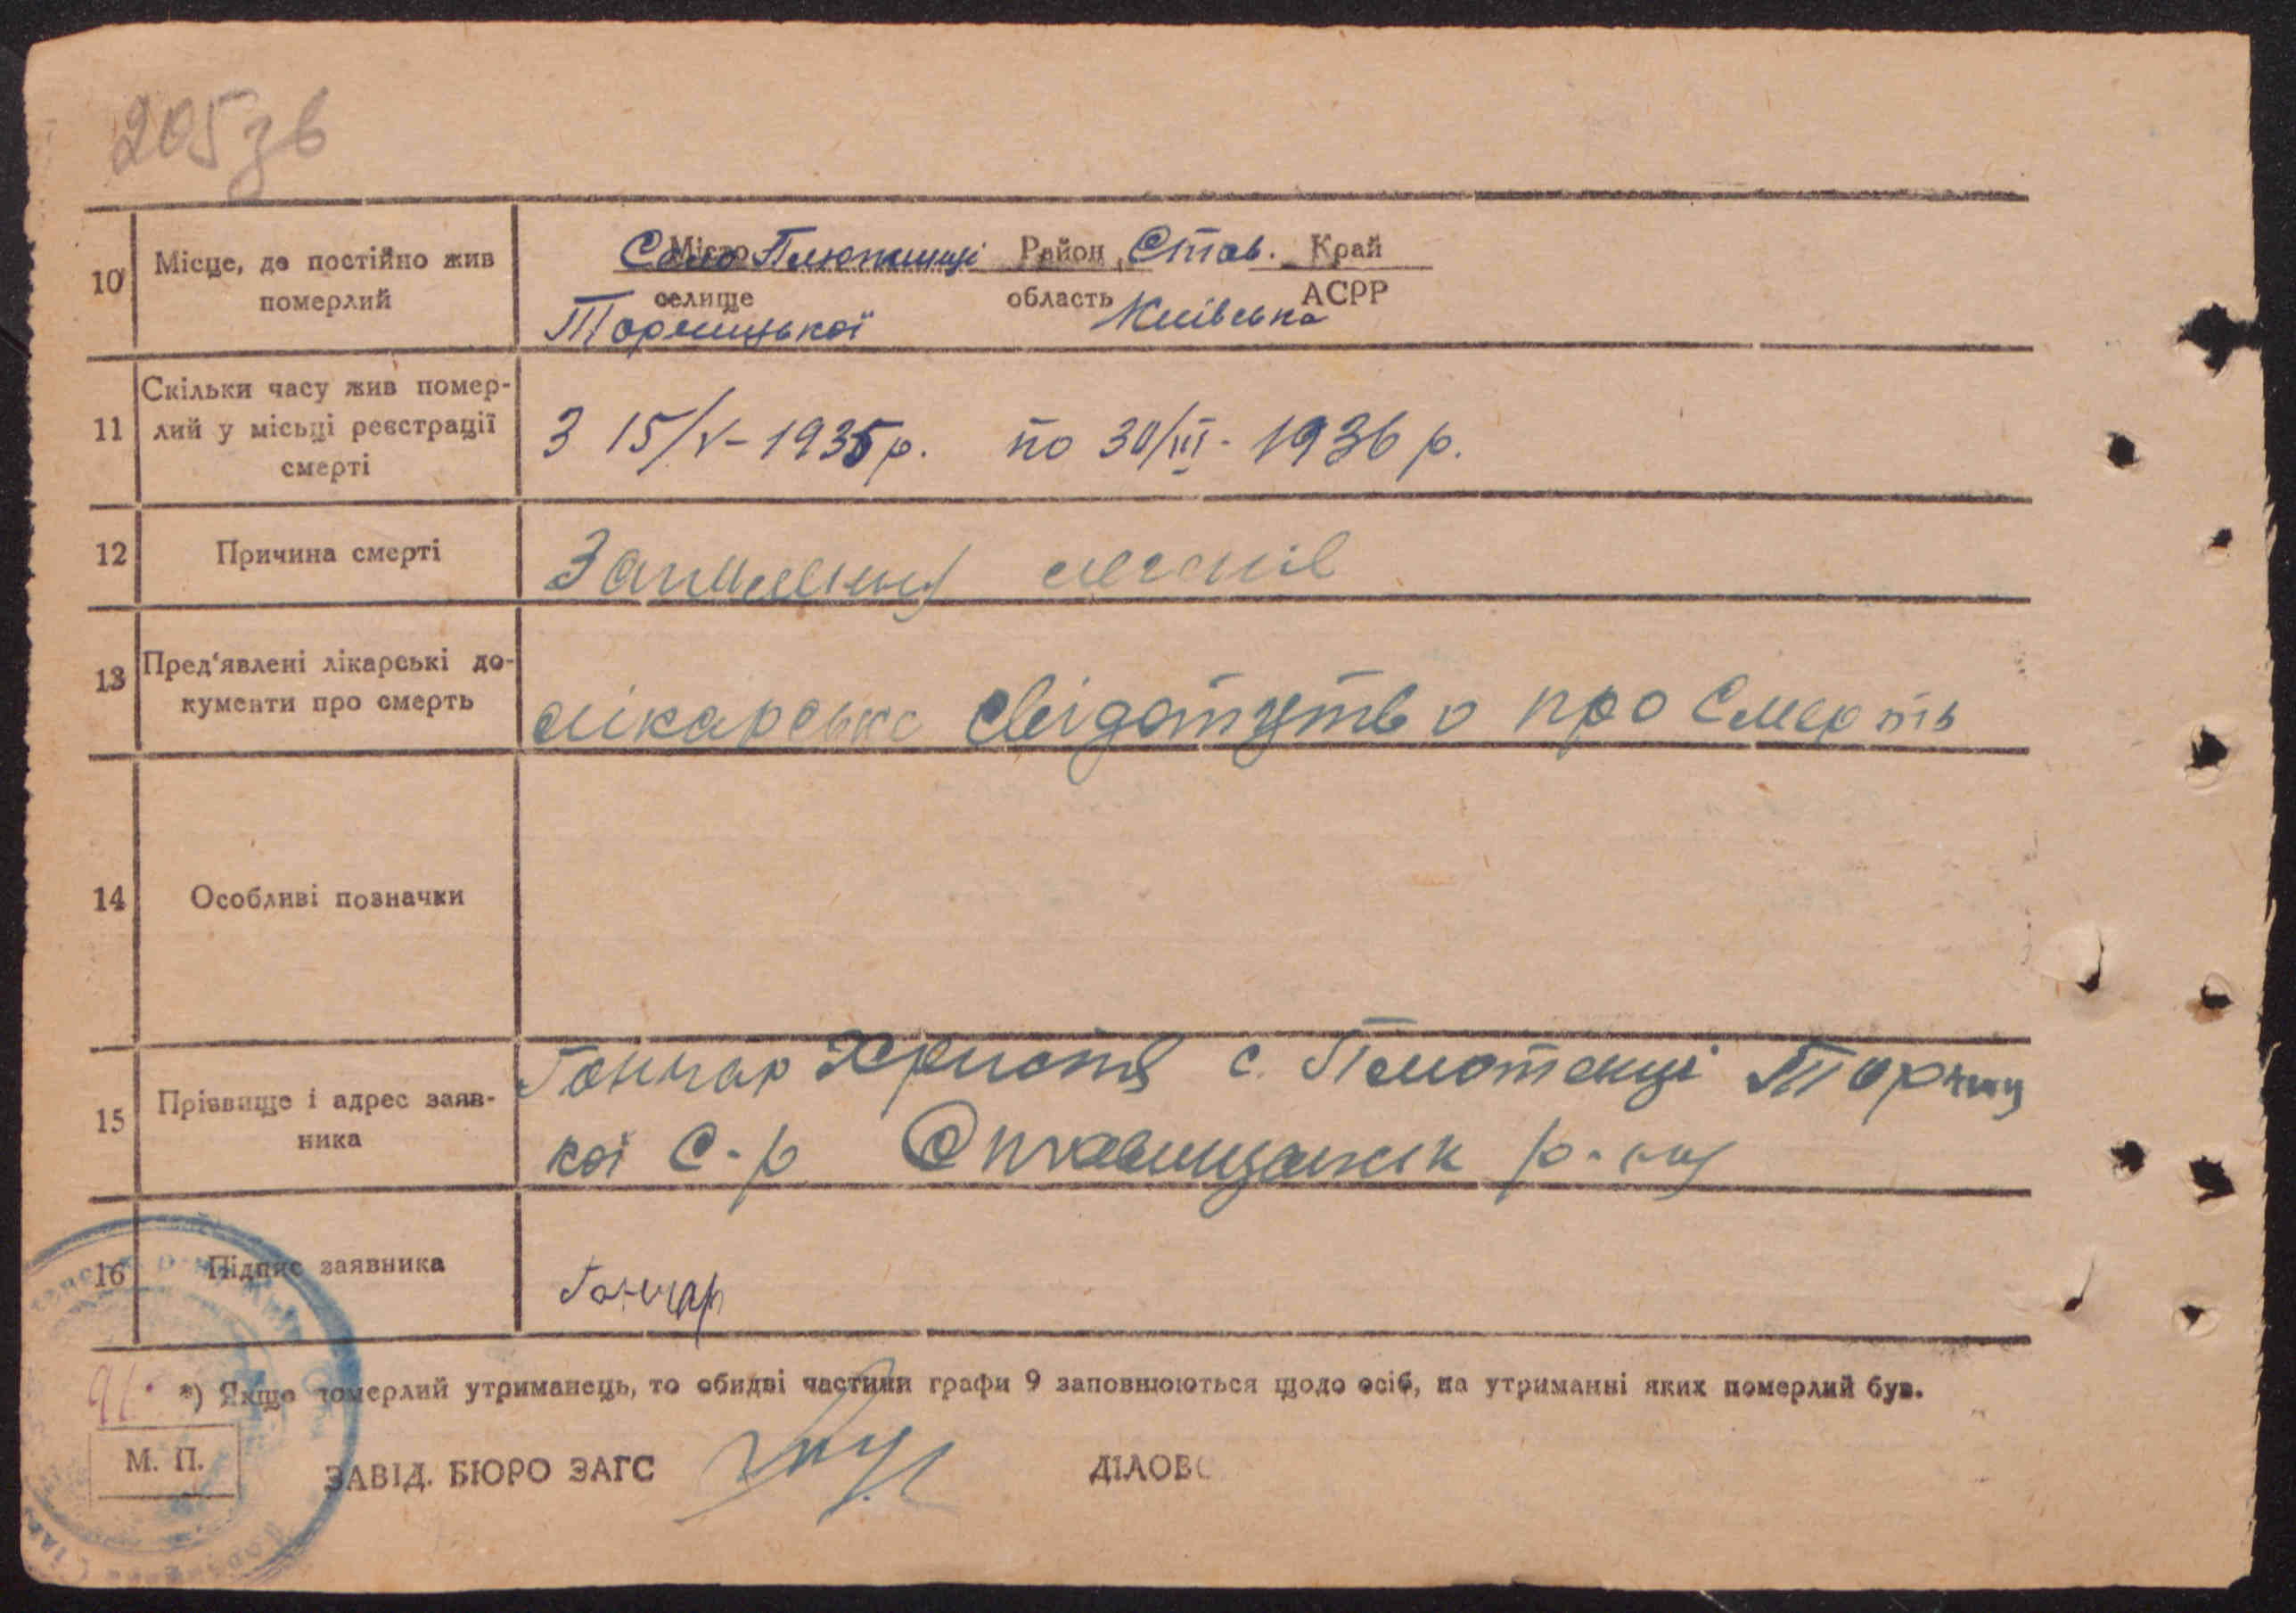 205 зв
10 Місце, де постійно жив померлий
Місто Село Район Став. Край
селище область Київська АСРР
Торчицької
11 Скільки часу жив помер-
лий у місьці реєстрації
смерті
З 15/V - 1935 р. по 30/III - 1936 р.
12 Причина смерті
Запалення легенів
13 Пред'явлені лікарські до-
кументи про смерть
лікарське свідотутво про смерть
14 Особливі позначки
15 Прізвище і адрес заяв-
ника
Гончар Христя с. Торчиц
кої с-р Ставищанськ р-ну
16 Підпис заявника
Гончар
*) Якщо померлий утриманець, то обидві частини графи 9 заповнюються щодо осіб, на утриманні яких померлий був.
М. П.
ЗАВІД. БЮРО ЗАГС ДІЛОВ